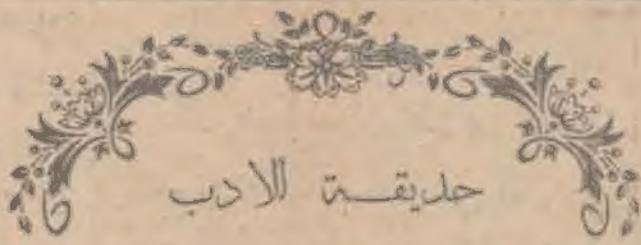 حديقة الأدب